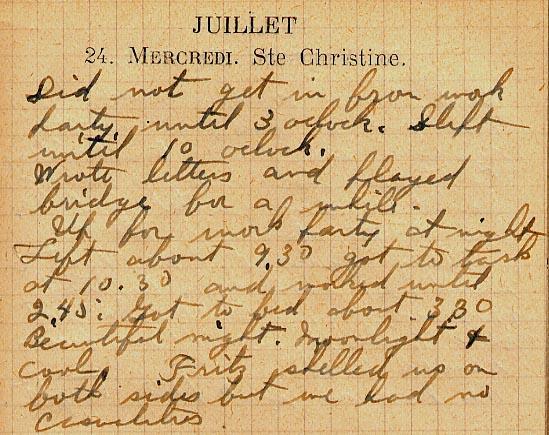 JUILLET
24. MERCREDI. Ste Christine.
Did not get in from work
party until 3 oclock. Slept
until 10 oclock.
Wrote letters and played
bridge for a while.
Up for work party at night
Left about 9.30 got to task
at 10.30 and worked until
2.45. Got to bed about 3.30
Beautiful night. Moonlight &
cool. Fritz shelled us on
both sides but we had no
casualties